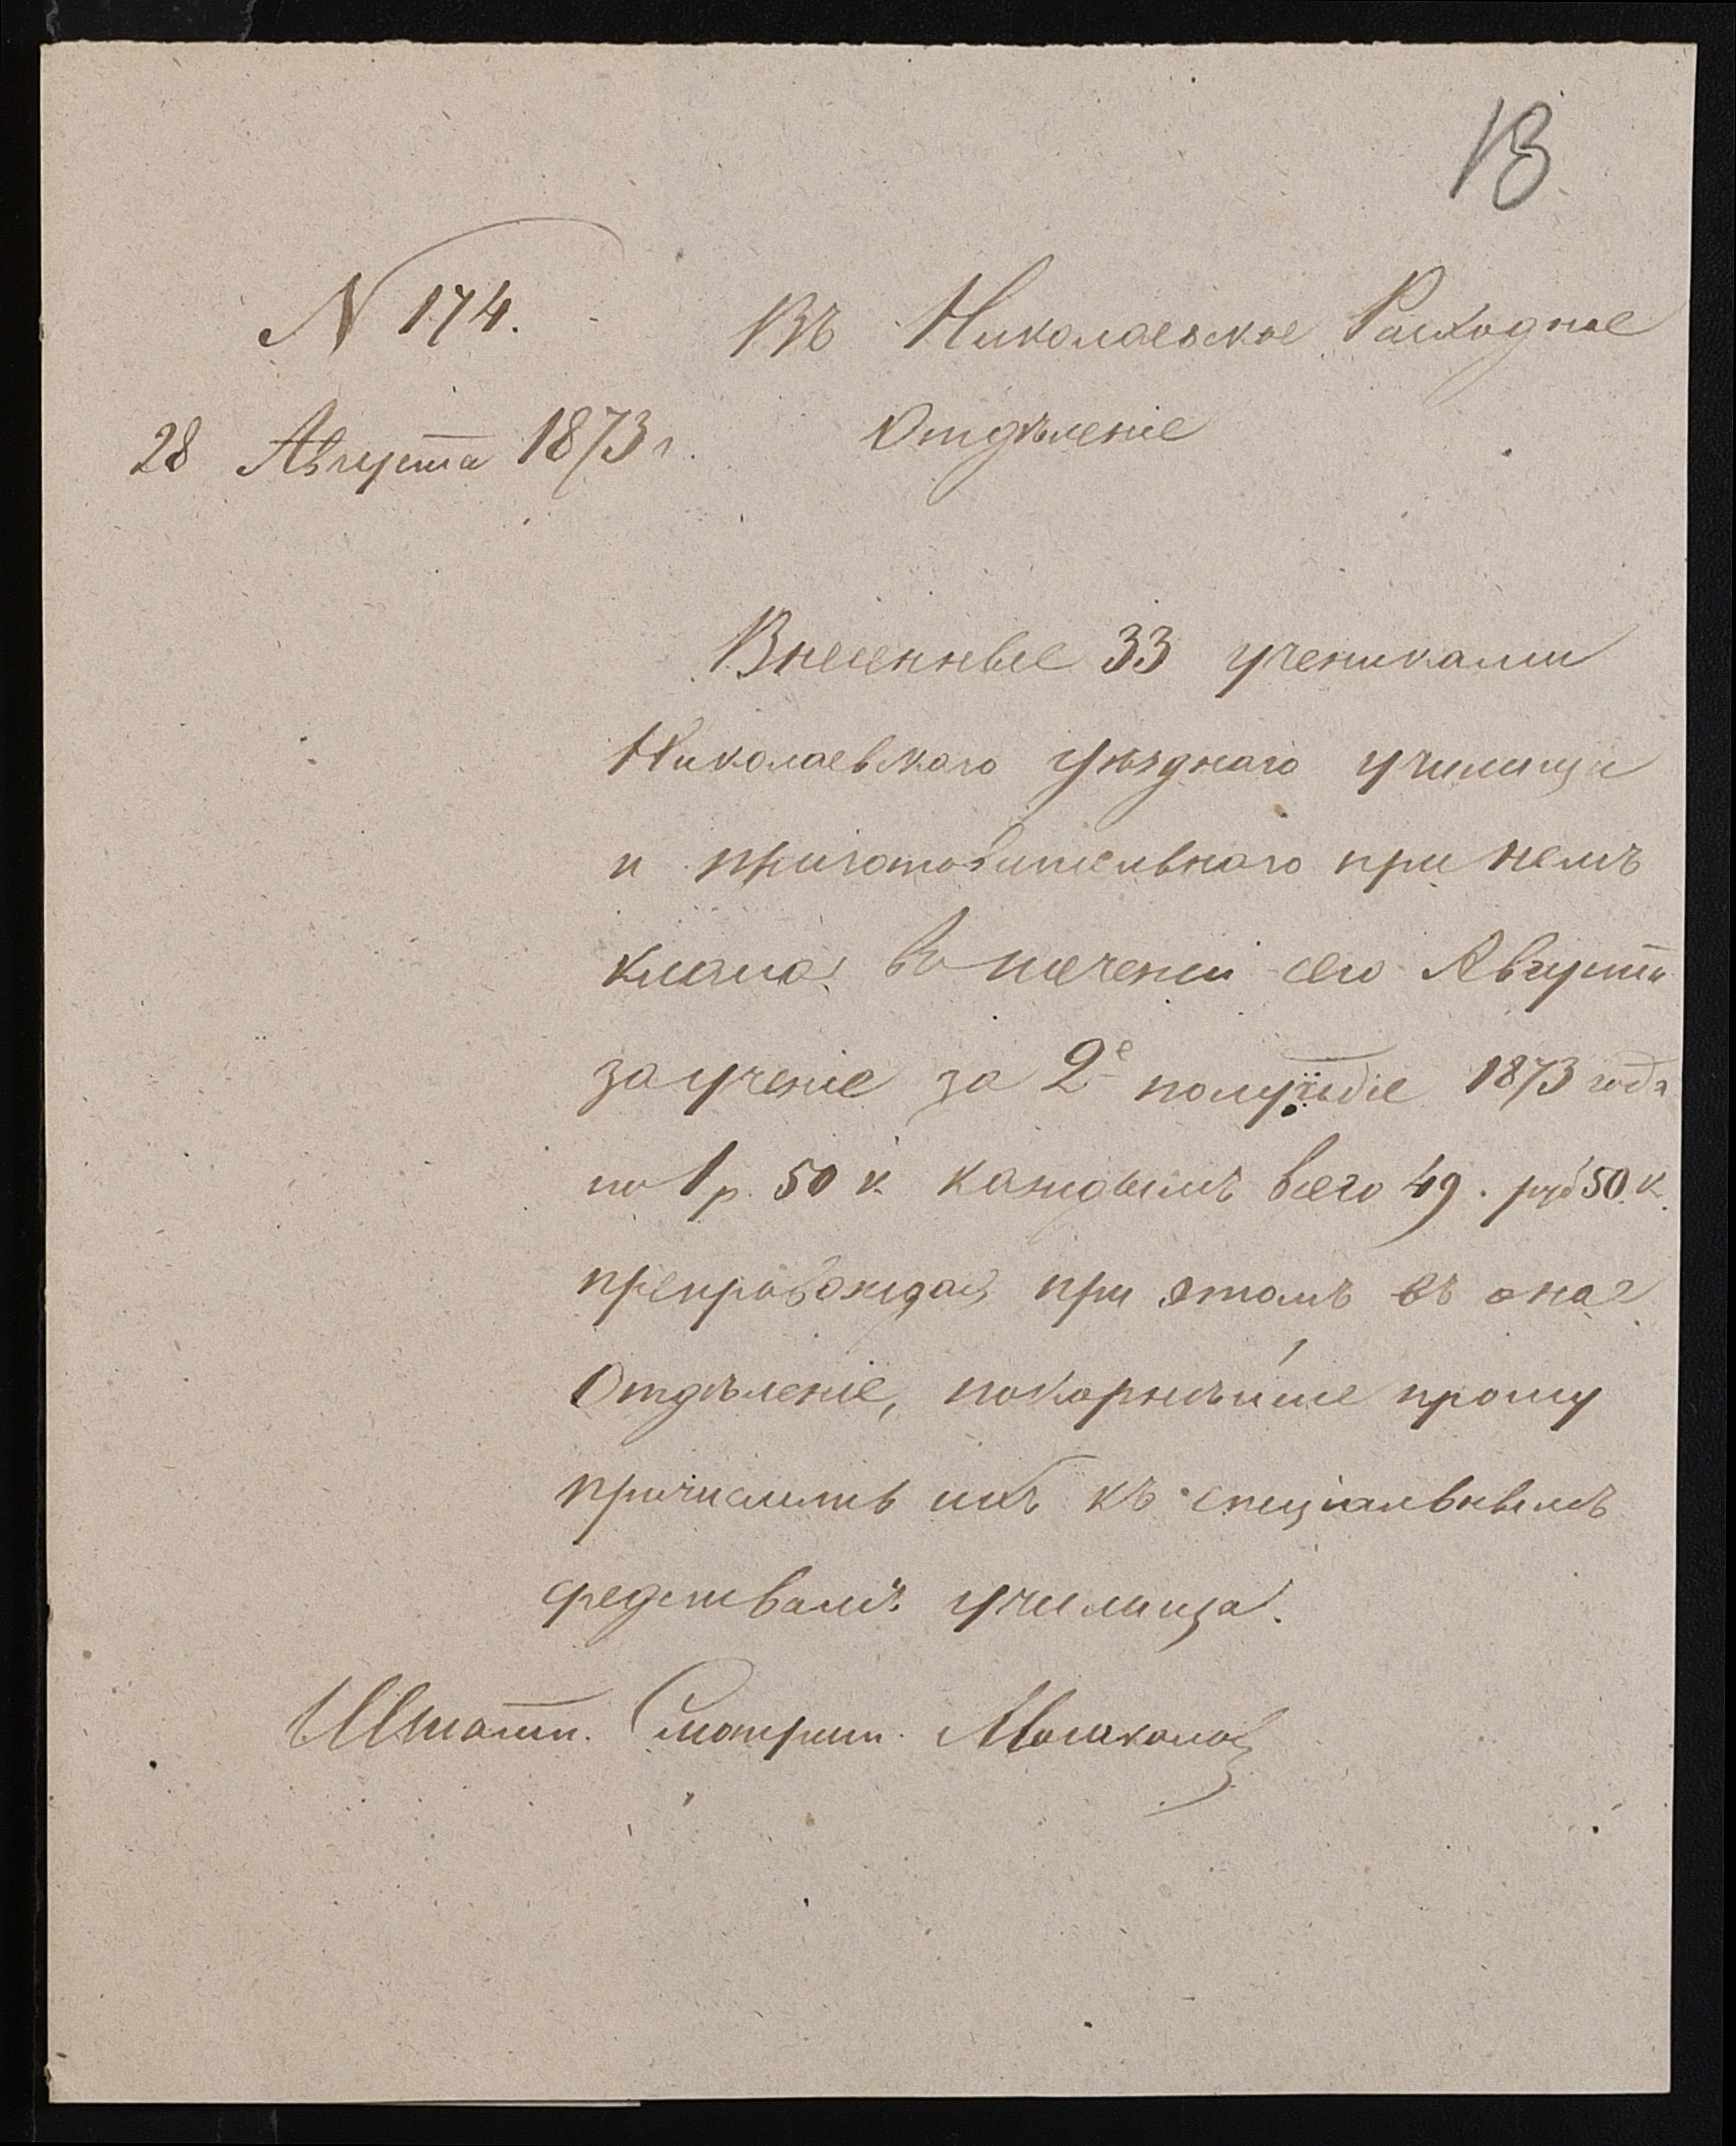 13
N 174.
Въ Николаевское Расходное
28 Августа 1873 г.
Отдѣленіе
Внесенные 33 учениками
Николаевскаго уѣзднаго училища
и приготовительнаго при немъ
класса, въ теченіи сего Августа
за ученіе за 2е полугодіе 1873 года
по 1 р. 50 к. каждымъ всего 49. руб 50. к.
препровождая при этомъ въ оное
Отдѣленіе, покорнѣйше прошу
причислить ихъ къ спеціальнымъ
средствамъ училища.
Штатн. Смотрит.